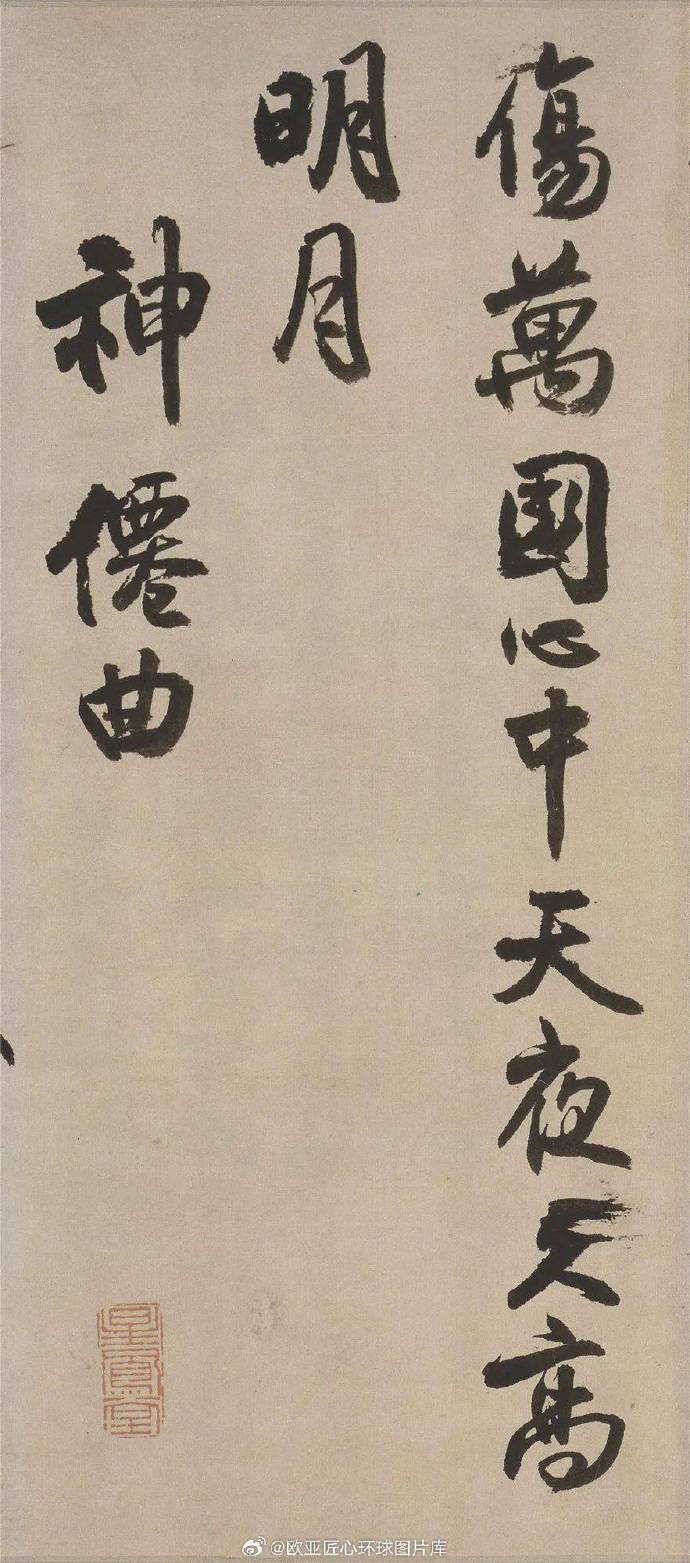 傷萬國心中天夜久高
明月
神僊曲
@欧亚匠心环球图片库